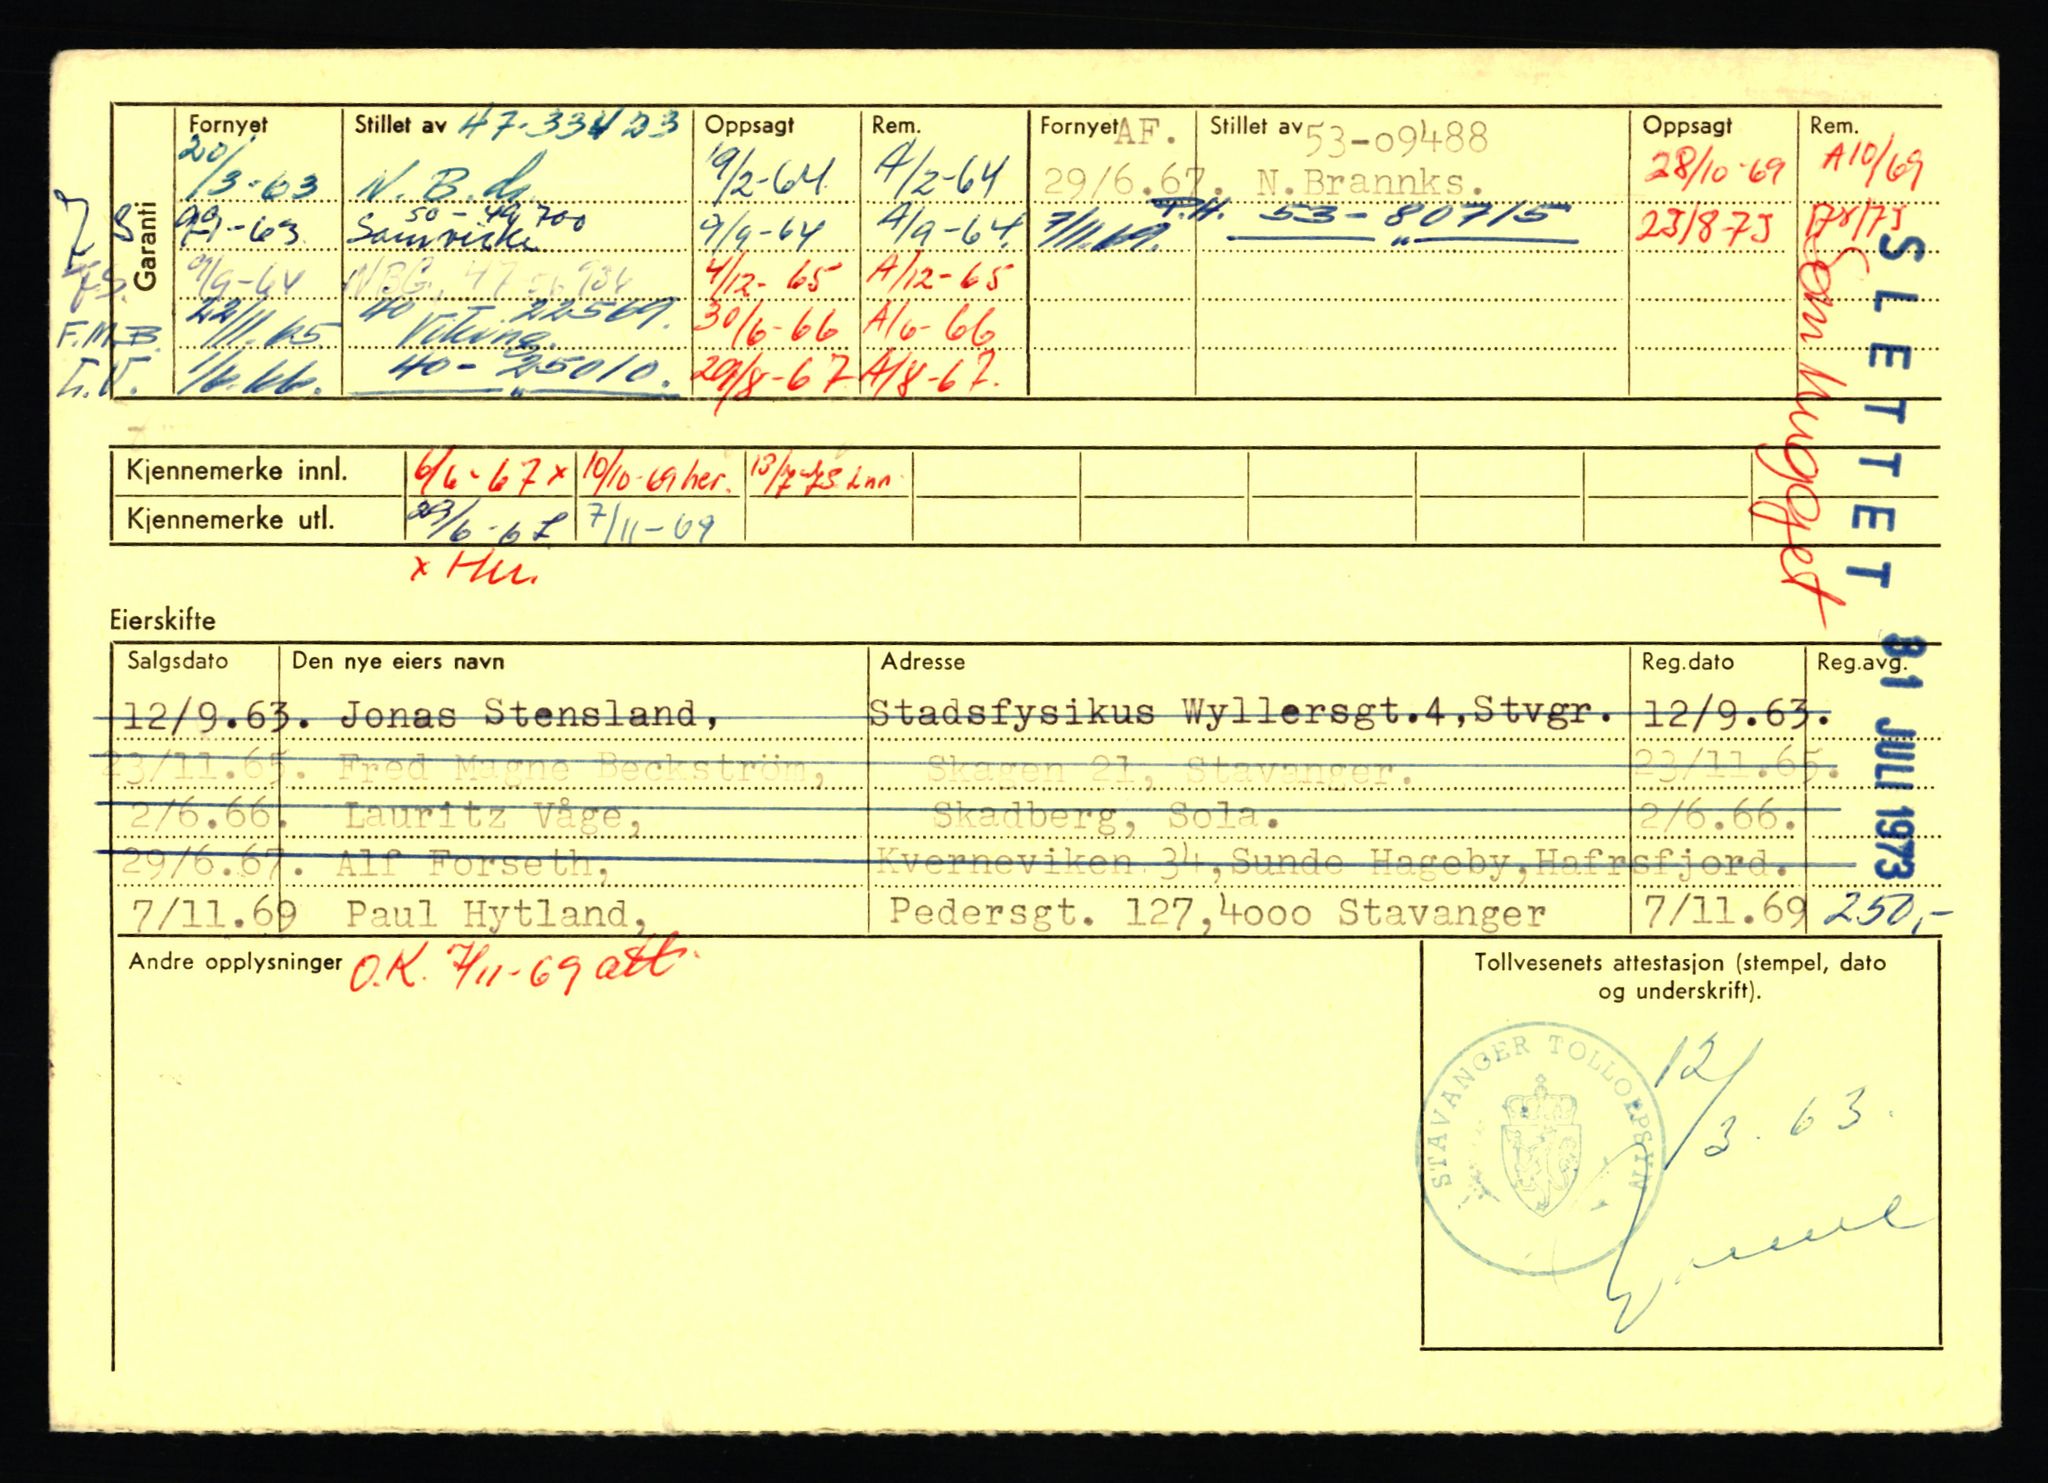 Garanti
Fornyet Stillet av 47-33423 Oppsagt Rem. Fornyet AF. Stillet av 53-o9488 Oppsagt Rem.
20/3-63 N.B. 19/2-64 A/2-64 29/6.67. N.Brannks. 28/10-69 A10/69
50-49700
J S -63 Samvirke 9/9-64 A/9-64 7/11.69. P.H. 53-80715 23/8 73
J.S. 9/9-64 NBG, 47 4/12-65 A/12-65
F.M.B. 22/11.65 40 22569. Viking. 30/6-66 A/6-66
L.V. 1/6.66. 40-25010. 29/8-67 A/8-67.
Kjennemerke innl. 6/6-67 x 10/10-69 her. 13/7-73 inn
Kjennemerke utl. 29/6-67 7/11-69
x Her.
SLETTET 31 JULI 1973
Som hugget
Eierskifte
Salgsdato Den nye eiers navn Adresse Reg.dato Reg.avg.
12/9.63. Jonas Stensland, Stadsfysikus Wyllersgt.4,Stvgr. 12/9.63.
23/11.65. Fred Magne Beckström, Skagen 21, Stavanger. 23/11.65.
2/6.66. Lauritz Våge, Skadberg, Sola. 2/6.66.
29/6.67. Alf Forseth, Kverneviken 34,Sunde Hageby,Hafrsfjord.
7/11.69 Paul Hytland, Pedersgt. 127,4ooo Stavanger 7/11.69 250,-
Andre opplysninger O.K. 7/11-69 att.
Tollvesenets attestasjon (stempel, dato
og underskrift).
STAVANGER TOLLOPPSYN
12/3.63.